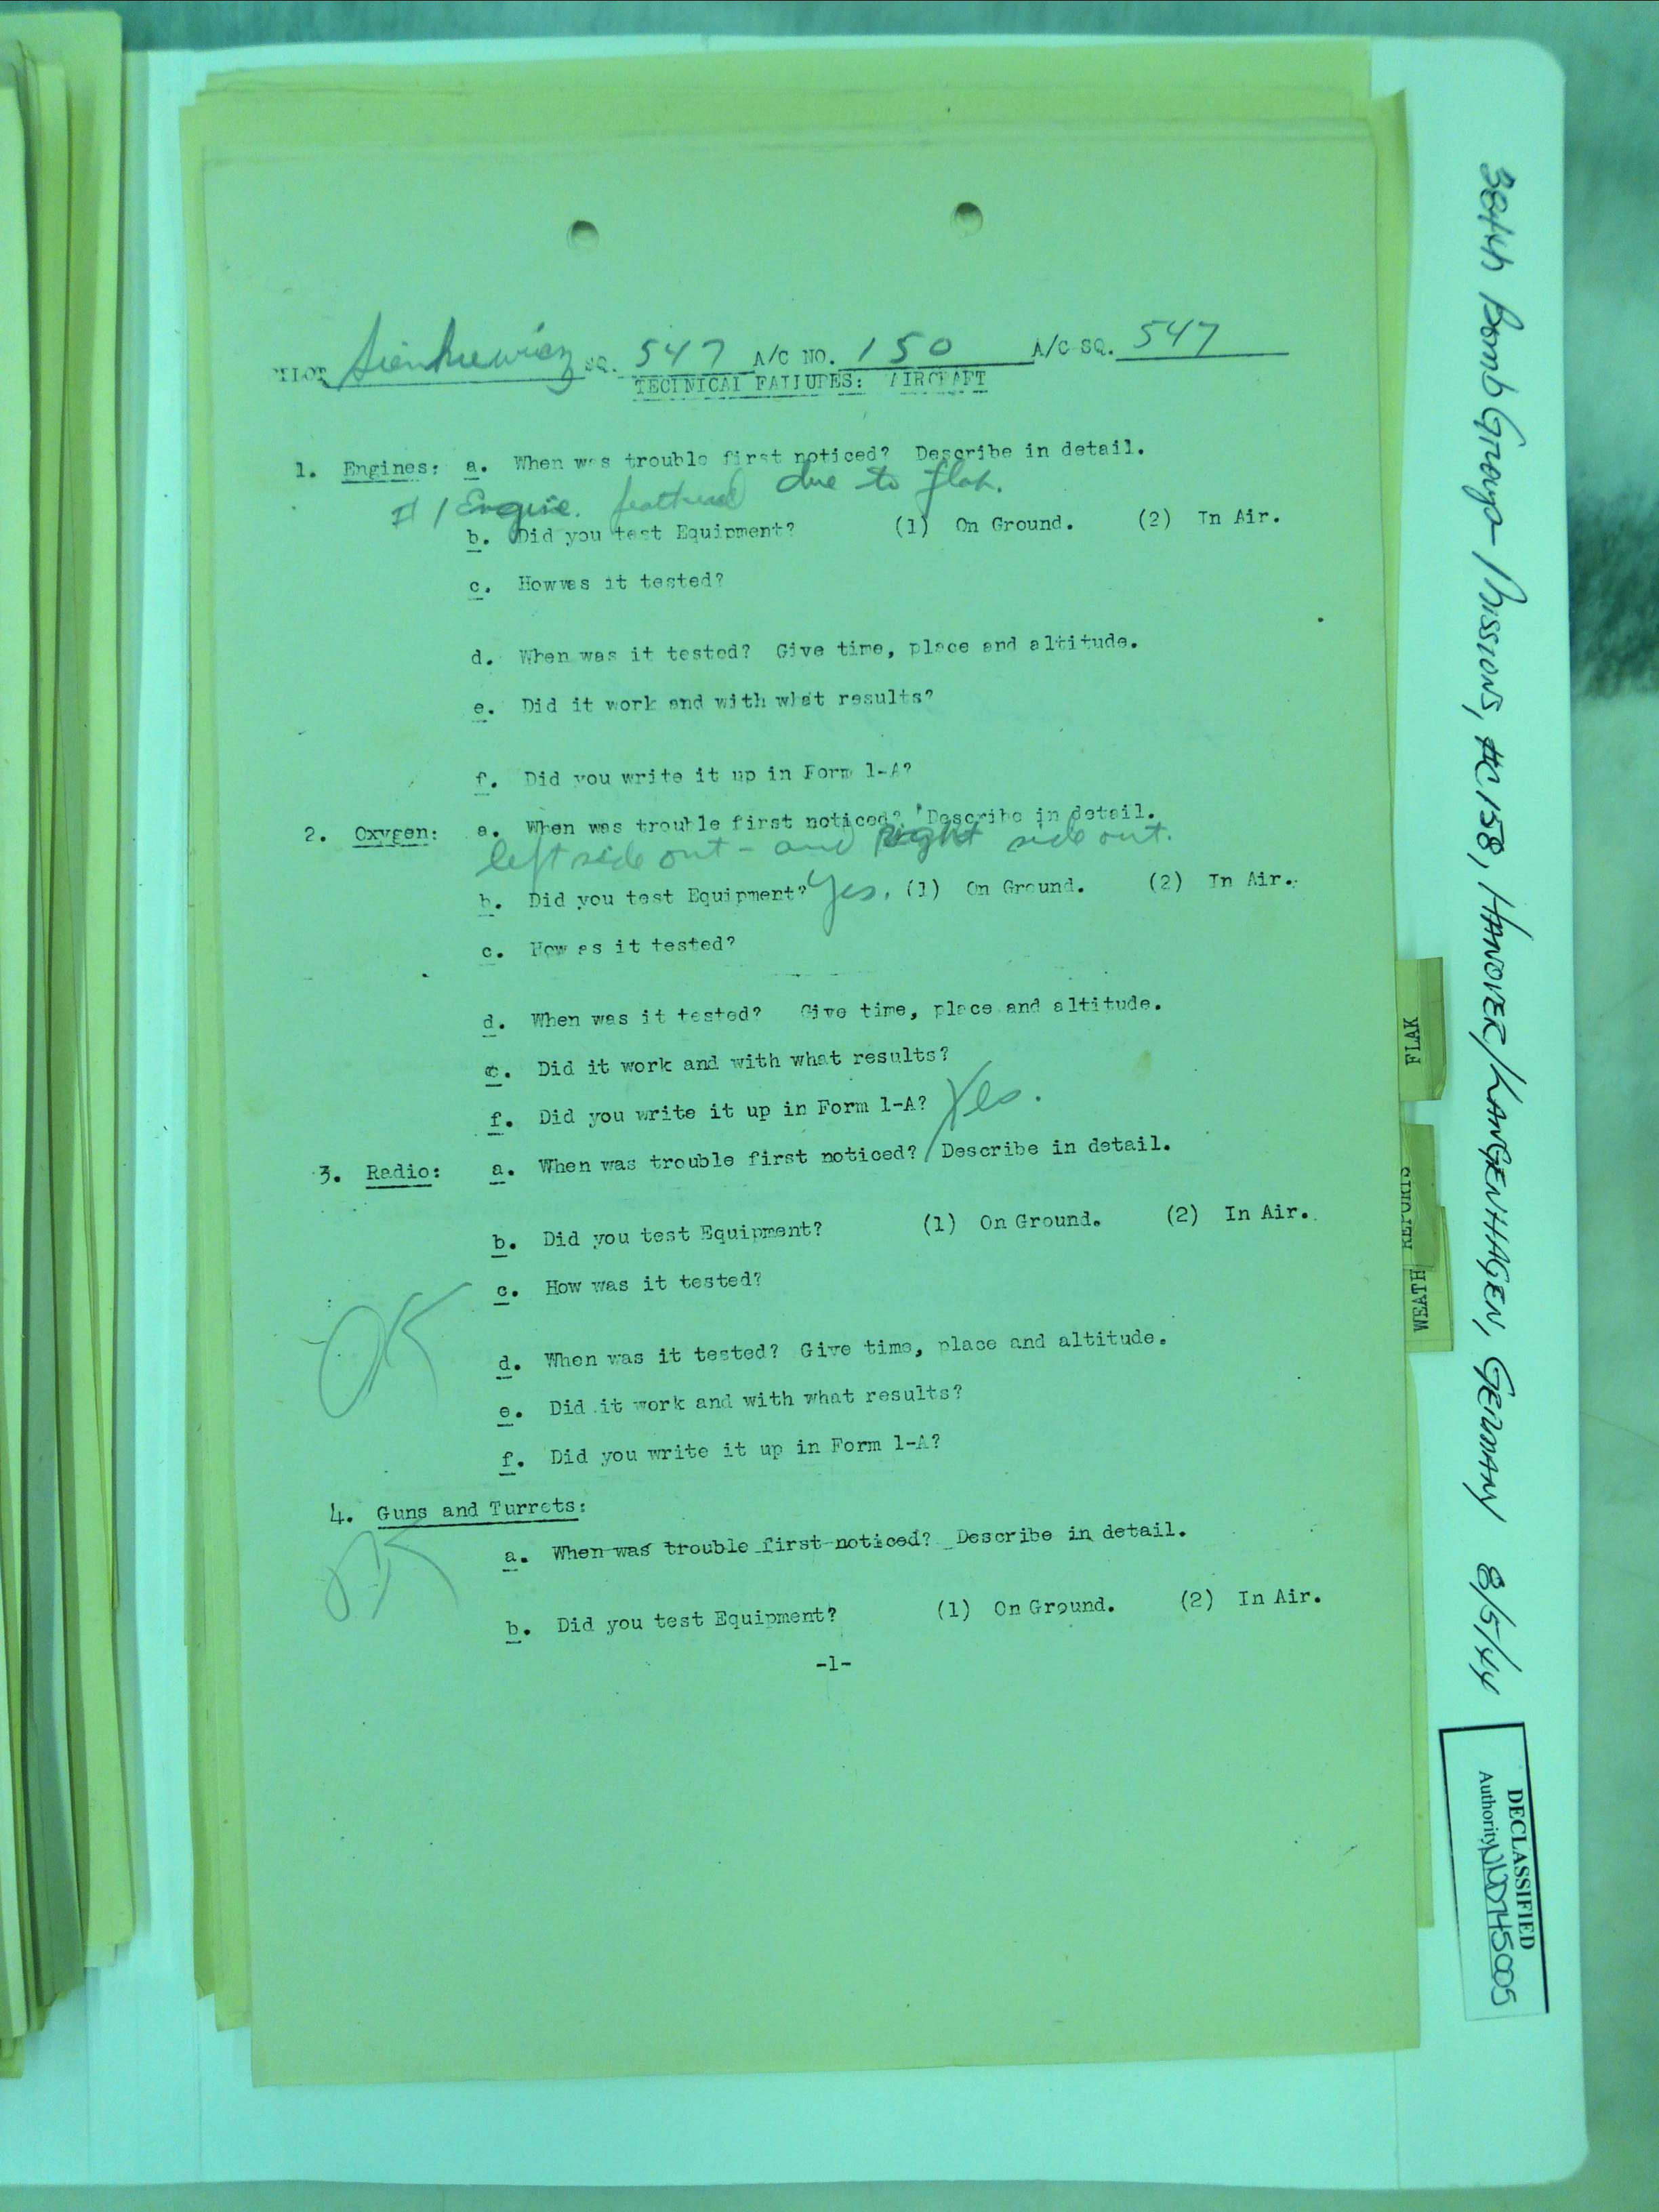 PILOT Sienkiewicz SQ. 547 A/C NO. 150 A/C SQ. 547
TECHNICAL FAILURES: AIRCRAFT
1. Engines: a. When was trouble first noticed? Describe in detail.
#1 Engine. feathered due to flak.
b. Did you test Equipment? (1) On Ground. (2) In Air.
c. How was it tested?
d. When was it tested? Give time, place and altitude.
e. Did it work and with what results?
f. Did you write it up in Form 1-A?
2. Oxygen: a. When was trouble first noticed? Describe in detail.
left side out - and Right side out.
b. Did you test Equipment? Yes. (1) On Ground. (2) In Air.
c. How as it tested?
d. When was it tested? Give time, place and altitude.
e. Did it work and with what results?
f. Did you write it up in Form 1-A? Yes.
3. Radio: a. When was trouble first noticed? Describe in detail.
b. Did you test Equipment? (1) On Ground. (2) In Air.
c. How was it tested?
OK
d. When was it tested? Give time, place and altitude.
e. Did it work and with what results?
f. Did you write it up in Form 1-A?
4. Guns and Turrets:
OK
a. When was trouble first noticed? Describe in detail.
b. Did you test Equipment? (1) On Ground. (2) In Air.
-1-
FLAK
REPORTS
WEATH
384th Bomb Group - Missions, #C158, HANOVER/LANGENHAGEN, GERMANY 8/5/44
DECLASSIFIED
Authority NND745005